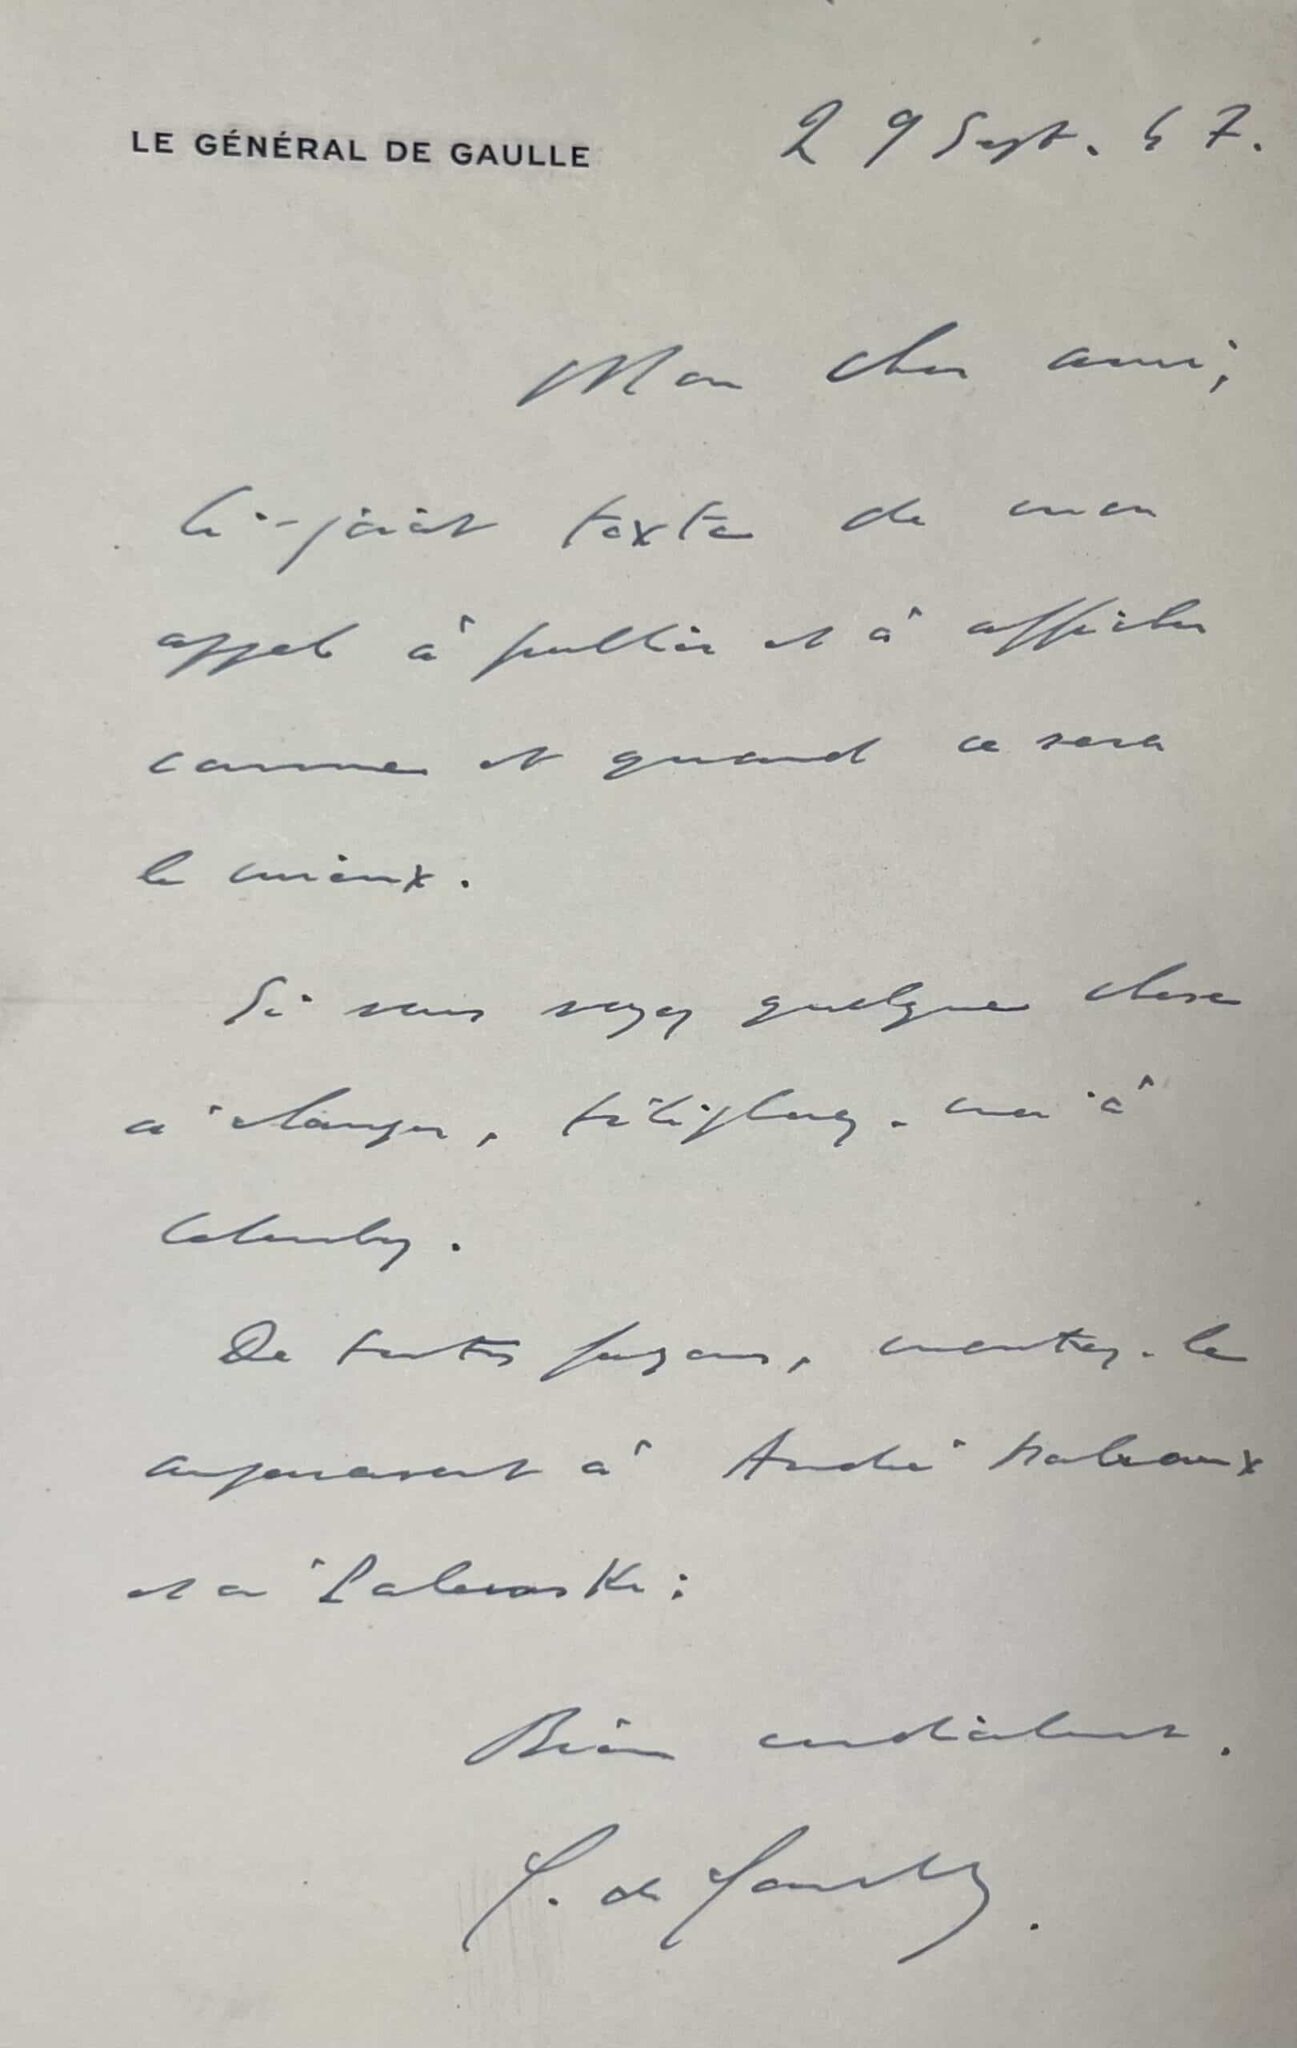 LE GÉNÉRAL DE GAULLE
29 Sept. 47.
Mon cher ami,
Ci-joint texte de mon
appel à publier et à afficher
comme et quand ce sera
le mieux.
Si vous voyez quelque chose
à changer, téléphonez-moi à
Colombey.
De toutes façons, montrez-le
auparavant à André Malraux
et à Palewski.
Bien cordialement.
C. de Gaulle.